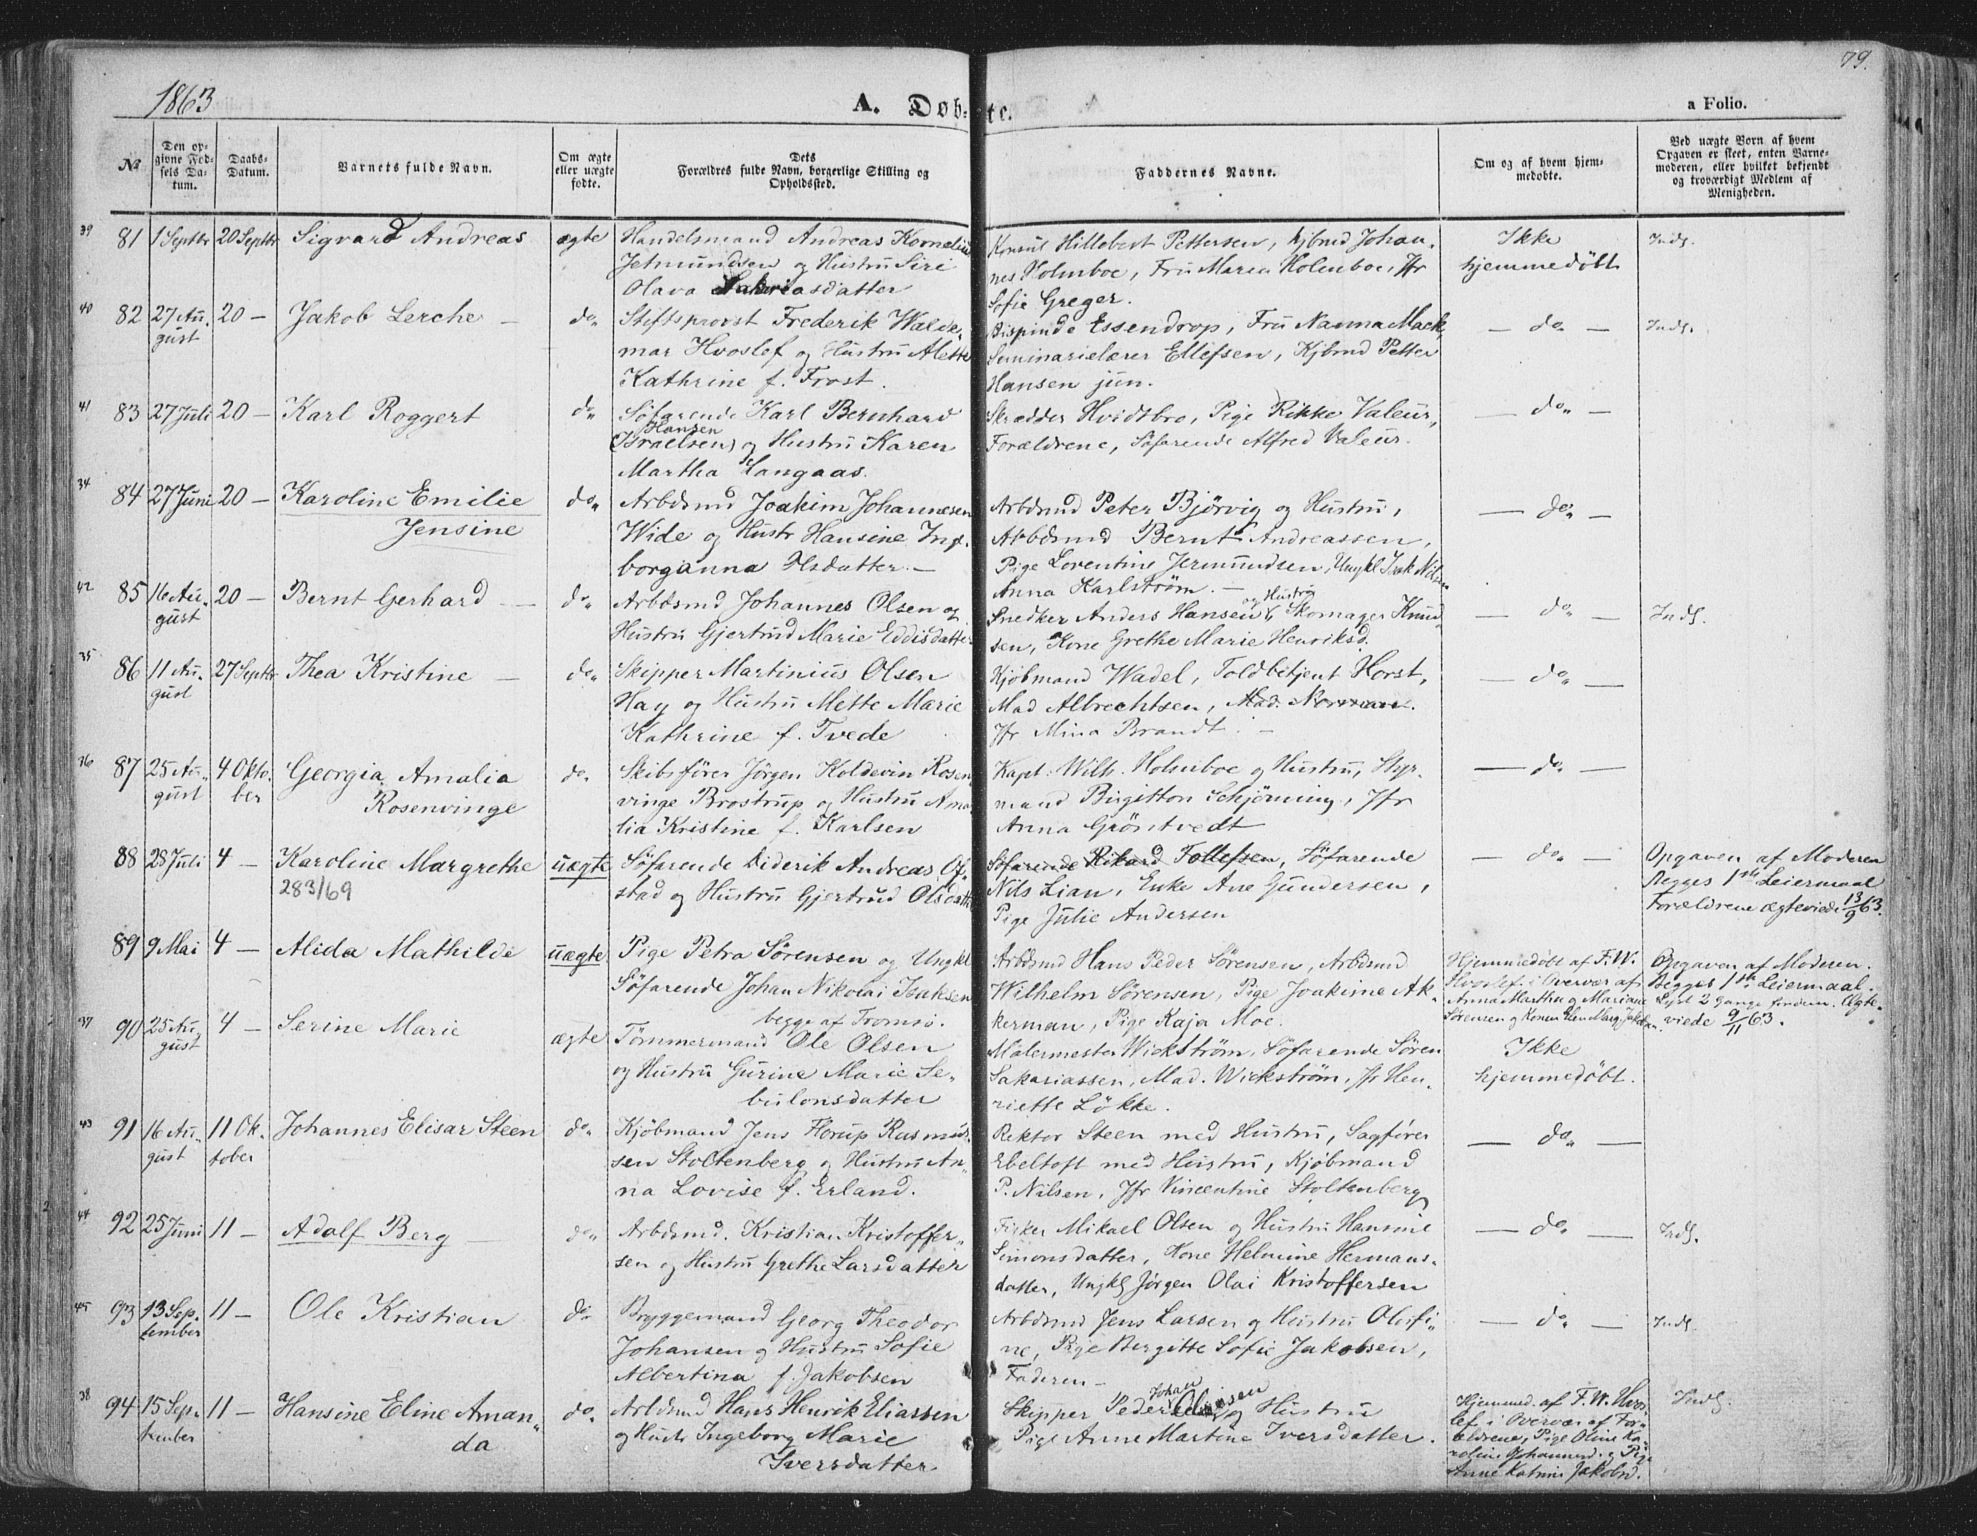 1863
A. Døb-
te.
79.
a Folio.
No
Den op-
givne Fød-
sels Da-
tum.
Daabs-
Datum.
Barnets fulde Navn.
Om ægte
eller uægte
fødte.
Dets
Forældres fulde Navn, borgerlige Stilling og
Opholdssted.
Faddernes Navne.
Om og af hvem hjem-
medøbte.
Ved uægte Børn af hvem
Opgaven er skeet, enten Barne-
moderen, eller hvilket bekjendt
og troværdigt Medlem af
Menigheden.
39 81 1 Septbr 20 Septbr Sigvard Andreas ægte
Handelsmand Andreas Kornelius
Jetmundsen og Hustru Siri
Olava Sakriasdatter
Konsul Hillebert Pettersen, Kjbmd Johan-
nes Holmboe, Fru Maren Holmboe, Jfr
Sofie Greger.
Ikke
hjemmedøbt
Inds.
40 82 27 Au-
gust
20 — Jakob Lerche — do
Stiftsprovst Frederik Walde-
mar Hvoslef og Hustru Alette
Kathrine f. Frost.
Bispinde Essendrop, Fru Nanna Mack
Seminarielærer Ellefsen, Kjbmd Petter
Hansen jun.
— do —
Inds.
41 83 27 Juli 20 — Karl Roggert do
Søfarende Karl Bernhard
Hansen
(Israelsen) og Hustru Karen
Martha Langaas.
Skrædder Hvidtbro, Pige Rikke Valeur,
Forældrene, Søfarende Alfred Valeur.
— do —
34 84 27 Juni 20 — Karoline Emilie
Jensine
do
Arbdsmd Joakim Johannesen
Wide og Hustr Hansine Inge-
borganna Ilsdatter. —
Arbdsmd Peter Bjørvig og Hustru,
Arbdsmd Bernt Andreassen,
Pige Lorentine Jermundsen, Ungkl Isak Nilsen
Anna Karlstrøm. —
— do —
42 85 16 Au-
gust
20 — Bernt Gerhard — do
Arbdsmd Johannes Olsen og
Hustru Gjertrud Marie Eddisdatter
og Hustru
Snedker Anders Hansen, Skomager Knud-
sen, Kone Grethe Marie Henriksd.
— do —
Inds.
35 86 11 Au-
gust
27 Septbr Thea Kristine — do
Skipper Martinius Olsen
Hay og Hustru Mette Marie
Kathrine f. Tvede
Kjøbmand Wadel, Toldbetjent Horst,
Mad Albrechtsen, Mad. Norman.
Jfr Mina Brandt. —
— do —
36 87 25 Au-
gust
4 Okto-
ber
Georgia Amalia
Rosenvinge
do
Skibsfører Jørgen Koldevin Rosen
vinge Brostrup og Hustru Ama-
lia Kristine f. Karlsen
Kapt. Wilh. Holmboe og Hustru, Styr-
mand Birgitton Schjønning, Jfr
Anna Grøntvedt
— do —
88 28 Juli 4 — Karoline Margrethe
283/69
uægte
Søfarende Diderik Andreas Of-
stad og Hustru Gjertrud Olsdattr
Søfarende Rikard Tollefsen, Søfarende
Nils Lian, Enke Ane Gundersen,
Pige Julie Andersen
— do —
Opgaven af Moderen
Begges 1ste Leiermaal
Forældrene ægteviede 13/9 63.
89 9 Mai 4 — Alida Mathilde uægte
Pige Petra Sørensen og Ungkl
Søfarende Johan Nikolai Isaksen
begge af Tromsø.
Arbdsmd Hans Peder Sørensen, Arbdsmd
Wilhelm Sørensen, Pige Joakime Ak-
kerman, Pige Kaja Moe.
Hjemmedøbt af F. W.
Hvoslef i Overvær af
Anna Martha og Mariane
Sørensen og Konen Elen Marg. Jakobsen.
Opgaven af Moderen.
Begges 1ste Leiermaal.
Lyst 2 Gange forinden. Ægte-
viede 9/11 63.
37 90 25 Au-
gust
4 — Serine Marie ægte
Tømmermand Ole Olsen
og Hustru Gurine Marie Se-
bulonsdatter
Malermester Wickstrøm, Søfarende Søren
Sakariassen, Mad. Wickstrøm, Jfr Hen-
riette Løkke.
Ikke
hjemmedøbt.
43 91 16 Au-
gust
11 Ok-
tober
Johannes Elisar Steen do
Kjøbmand Jens Horup Rasmus-
sen Stoltenberg og Hustru An-
na Lovise f. Erland.
Rektor Steen med Hustru, Sagfører
Ebeltoft med Hustru, Kjøbmand
P. Nilsen, Jfr Vincentine Stoltenberg
— do —
44 92 25 Juni 11 — Adolf Berg — do
Arbdsmd. Kristian Kristoffer-
sen og Hustru Grethe Larsdatter
Fisker Mikael Olsen og Hustru Hansine
Simonsdatter, Kone Helmine Hermans-
datter, Ungkl Jørgen Olai Kristoffersen
— do —
Inds.
45 93 13 Sep-
tember
11 — Ole Kristian do
Bryggemand Georg Theodor
Johansen og Hustru Sofie
Albertina f. Jakobsen
Arbdsmd Jens Larsen og Hustru Olufi-
ne, Pige Bergitte Sofie Jakobsen,
Faderen —
— do —
Inds.
38 94 15 Sep-
tember
11 — Hansine Eline Aman-
da
do
Arbdsmd Hans Henrik Eliassen
og Hustr Ingeborg Marie
Iversdatter.
Johan
Skipper Peder og Hustru
Pige Anne Martine Iversdatter.
Hjemmed. af F. W. Hvos-
lef i Overvær af For-
ældrene, Pige Oline Ka-
roline Johannesd. og Pige
Anne Katrine Jakobsd.
Inds.